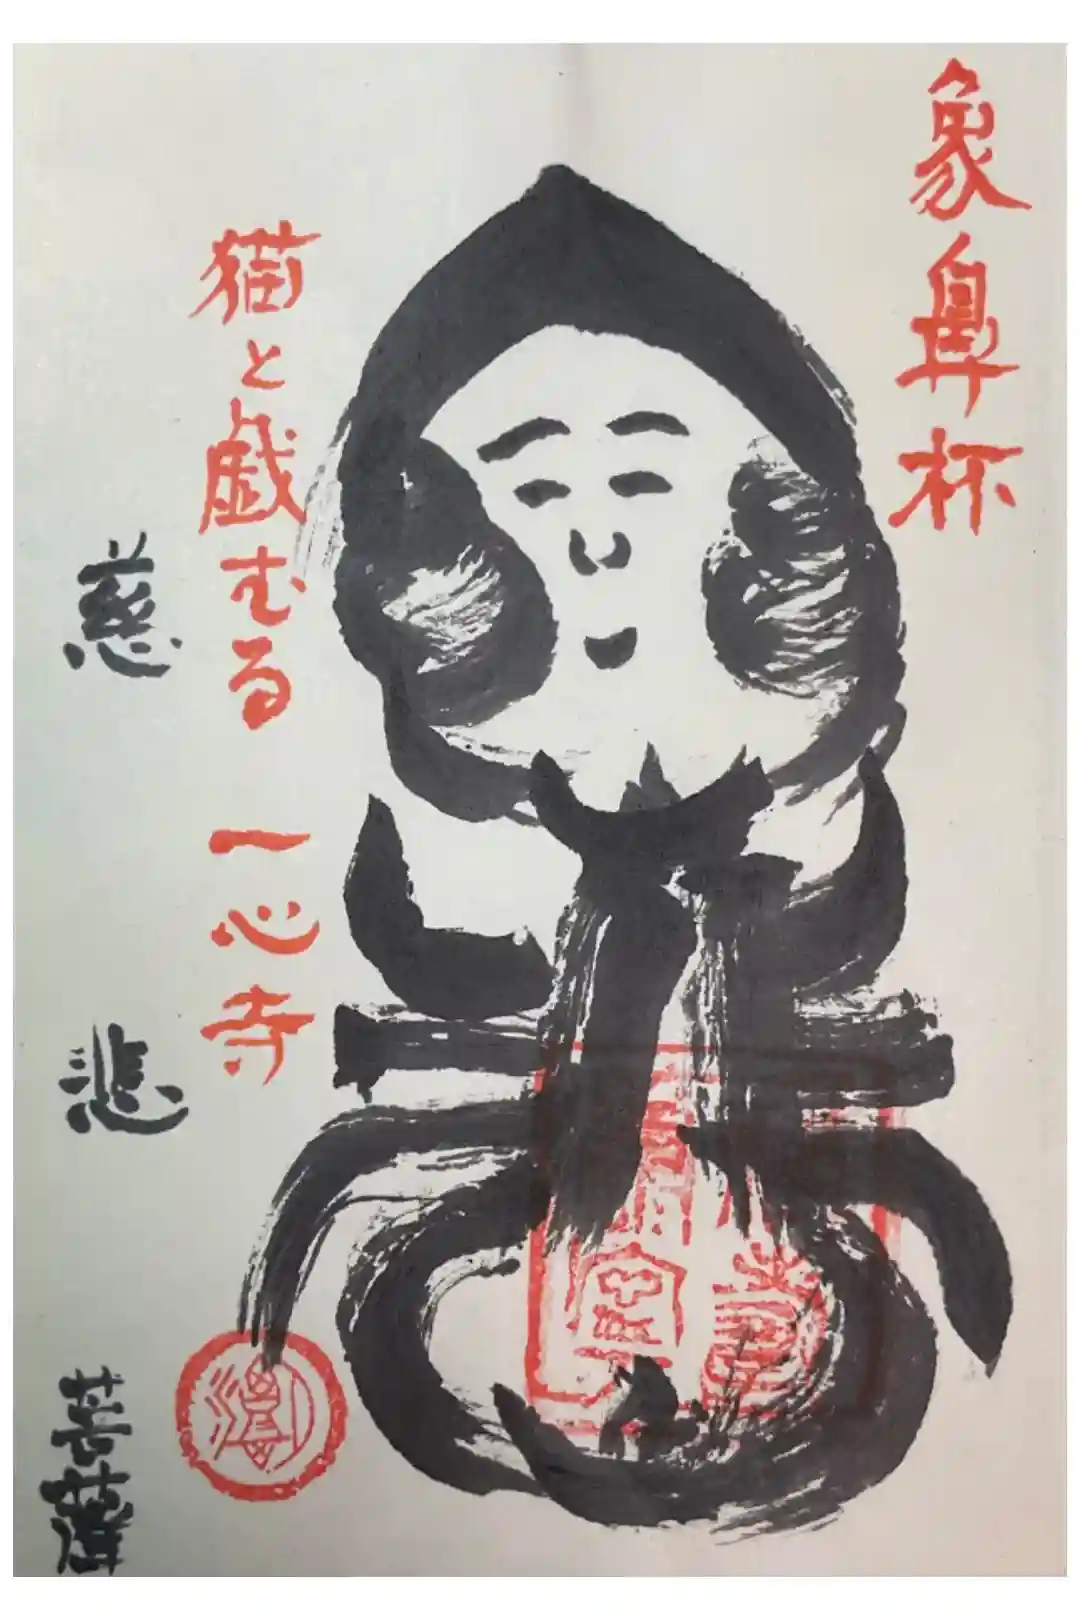 象鼻杯
猫と戯むる 一心寺
慈 悲 菩薩